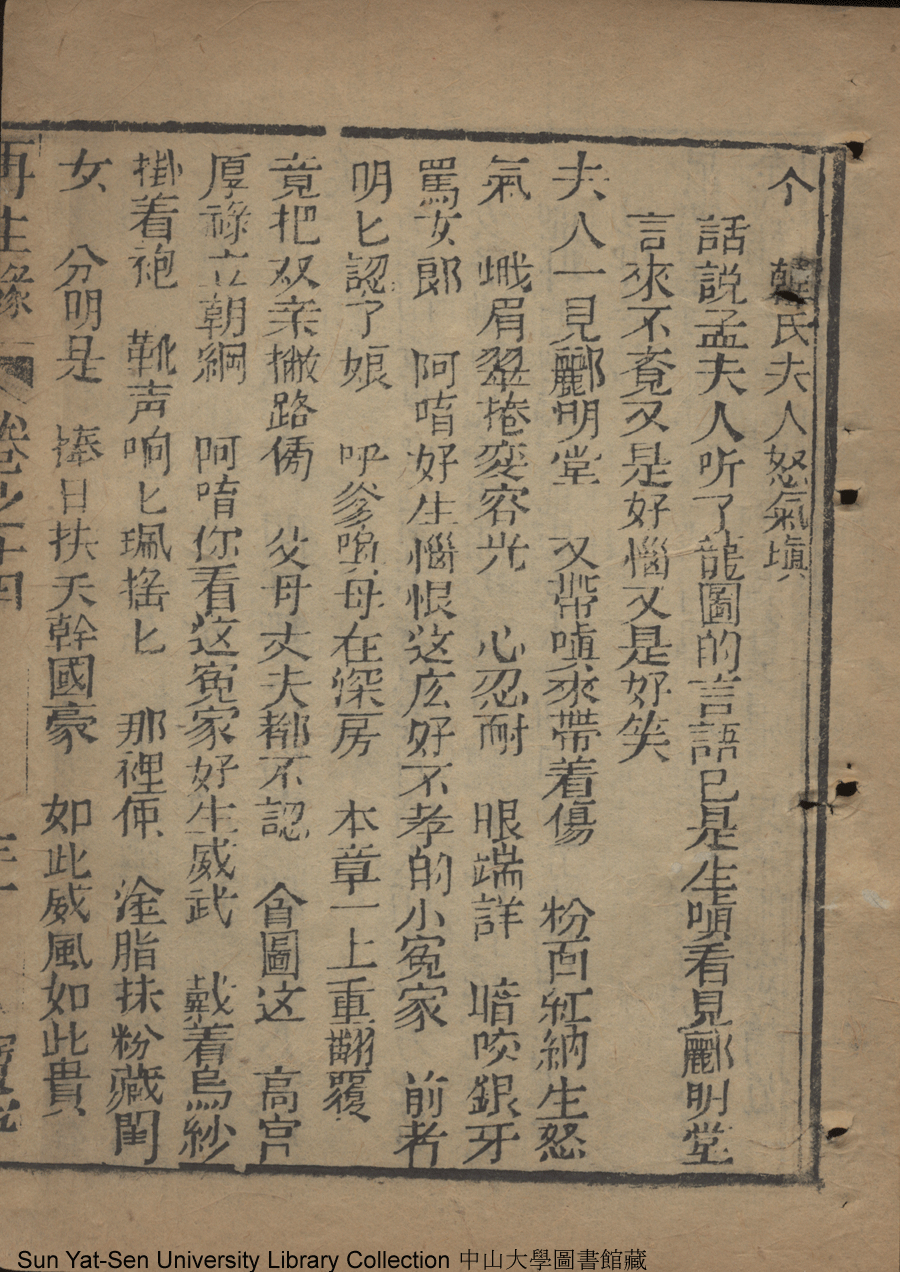 个　韓氏夫人怒氣填
話說孟夫人听了龍圖的言語已是生嗔看見酈明堂
言來不覔又是好惱又是好笑
夫人一見酈明堂　又帶嗔來帶着傷　粉面紅納生怒
氣　蛾眉翠捲変容光　心忍耐　眼端詳　暗咬銀牙
罵女郎　阿唷好生惱恨这庅好不孝的小寃家　前者
明匕認了娘　呼爹喚母在深房　本章一上重翻覆
竟把双亲撇路傍　父母丈夫都不認　貪圖这　高官
厚祿立朝綱　阿唷你看这寃家好生威武　戴着烏紗
掛着袍　靴声响匕珮搖匕　那裡像　塗脂抹粉藏閨
女　分明是　捧日扶天幹國豪　如此威風如此貴
再生緣　卷之十四
Sun Yat-Sen University Library Collection 中山大學圖書館藏